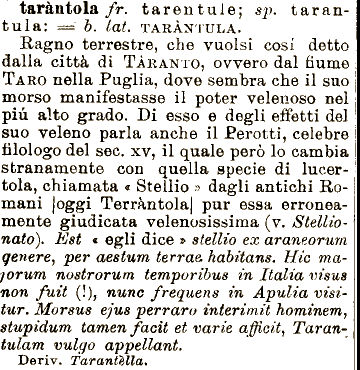 taràntola fr. tarentule; sp. taran-
tula: = b. lat. TARÀNTULA.
Ragno terrestre, che vuolsi cosí detto
dalla città di TÀRANTO, ovvero dal fiume
TARO nella Puglia, dove sembra che il suo
morso manifestasse il poter velenoso nel
piú alto grado. Di esso e degli effetti del
suo veleno parla anche il Perotti, celebre
filologo del sec. XV, il quale però lo cambia
stranamente con quella specie di lucer-
tola, chiamata « Stellio » dagli antichi Ro-
mani [oggi Terràntola] pur essa erronea-
mente giudicata velenosissima (v. Stellio-
nato). Est « egli dice » stellio ex araneorum
genere, per aestum terrae habitans. Hic ma-
jorum nostrorum temporibus in Italia visus
non fuit (!), nunc frequens in Apulia visi-
tur. Morsus ejus perraro interimit hominem,
stupidum tamen facit et varie afficit, Taran-
tulam vulgo appellant.
Deriv. Tarantèlla.